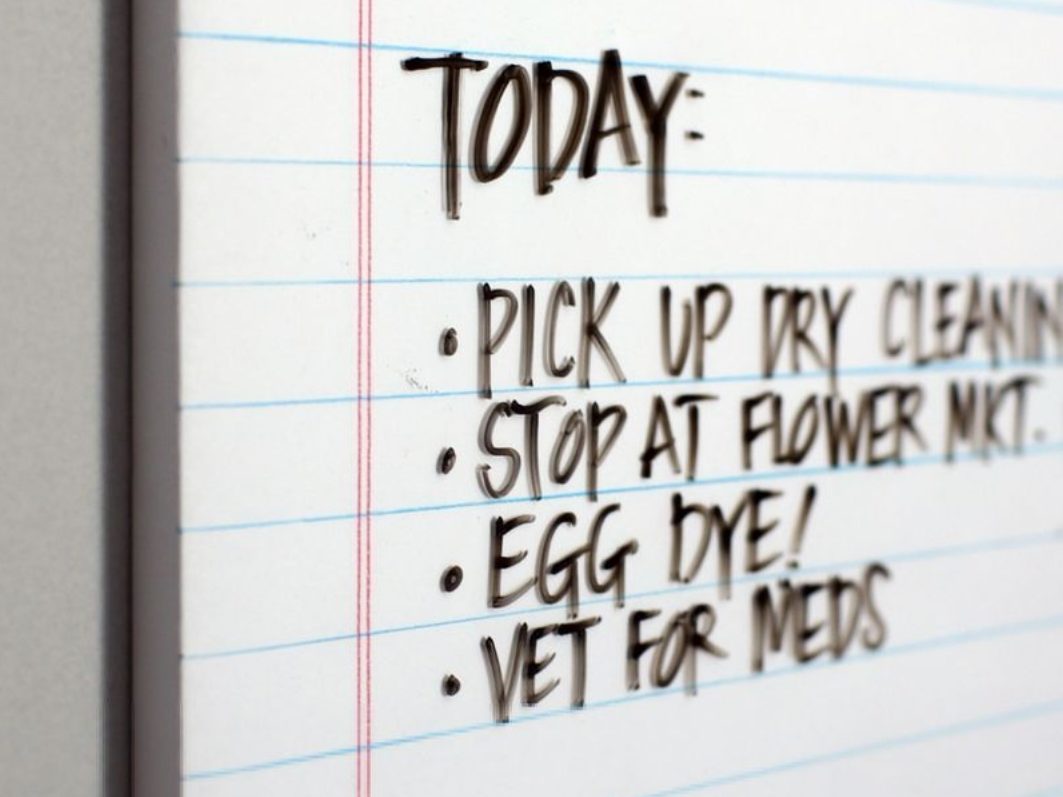 TODAY:
• PICK UP DRY CLEANIN
• STOP AT FLOWER MKT.
• EGG DYE!
• VET FOR MEDS